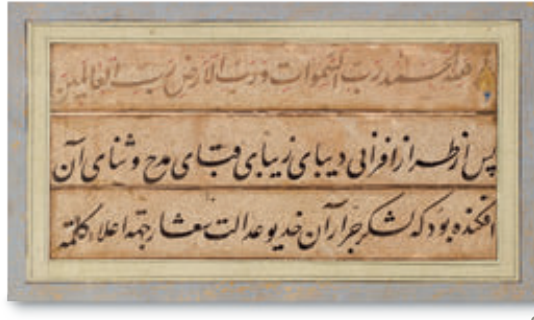 فلله الحمد رب السموات و رب الارض رب العالمین
پس از طراز افزائی دیبای زیبای قبای مدح و ثنای آن
افکنده بود که لشکر جرار آن خدیو عدالت شعار جهة اعلاء کلمه